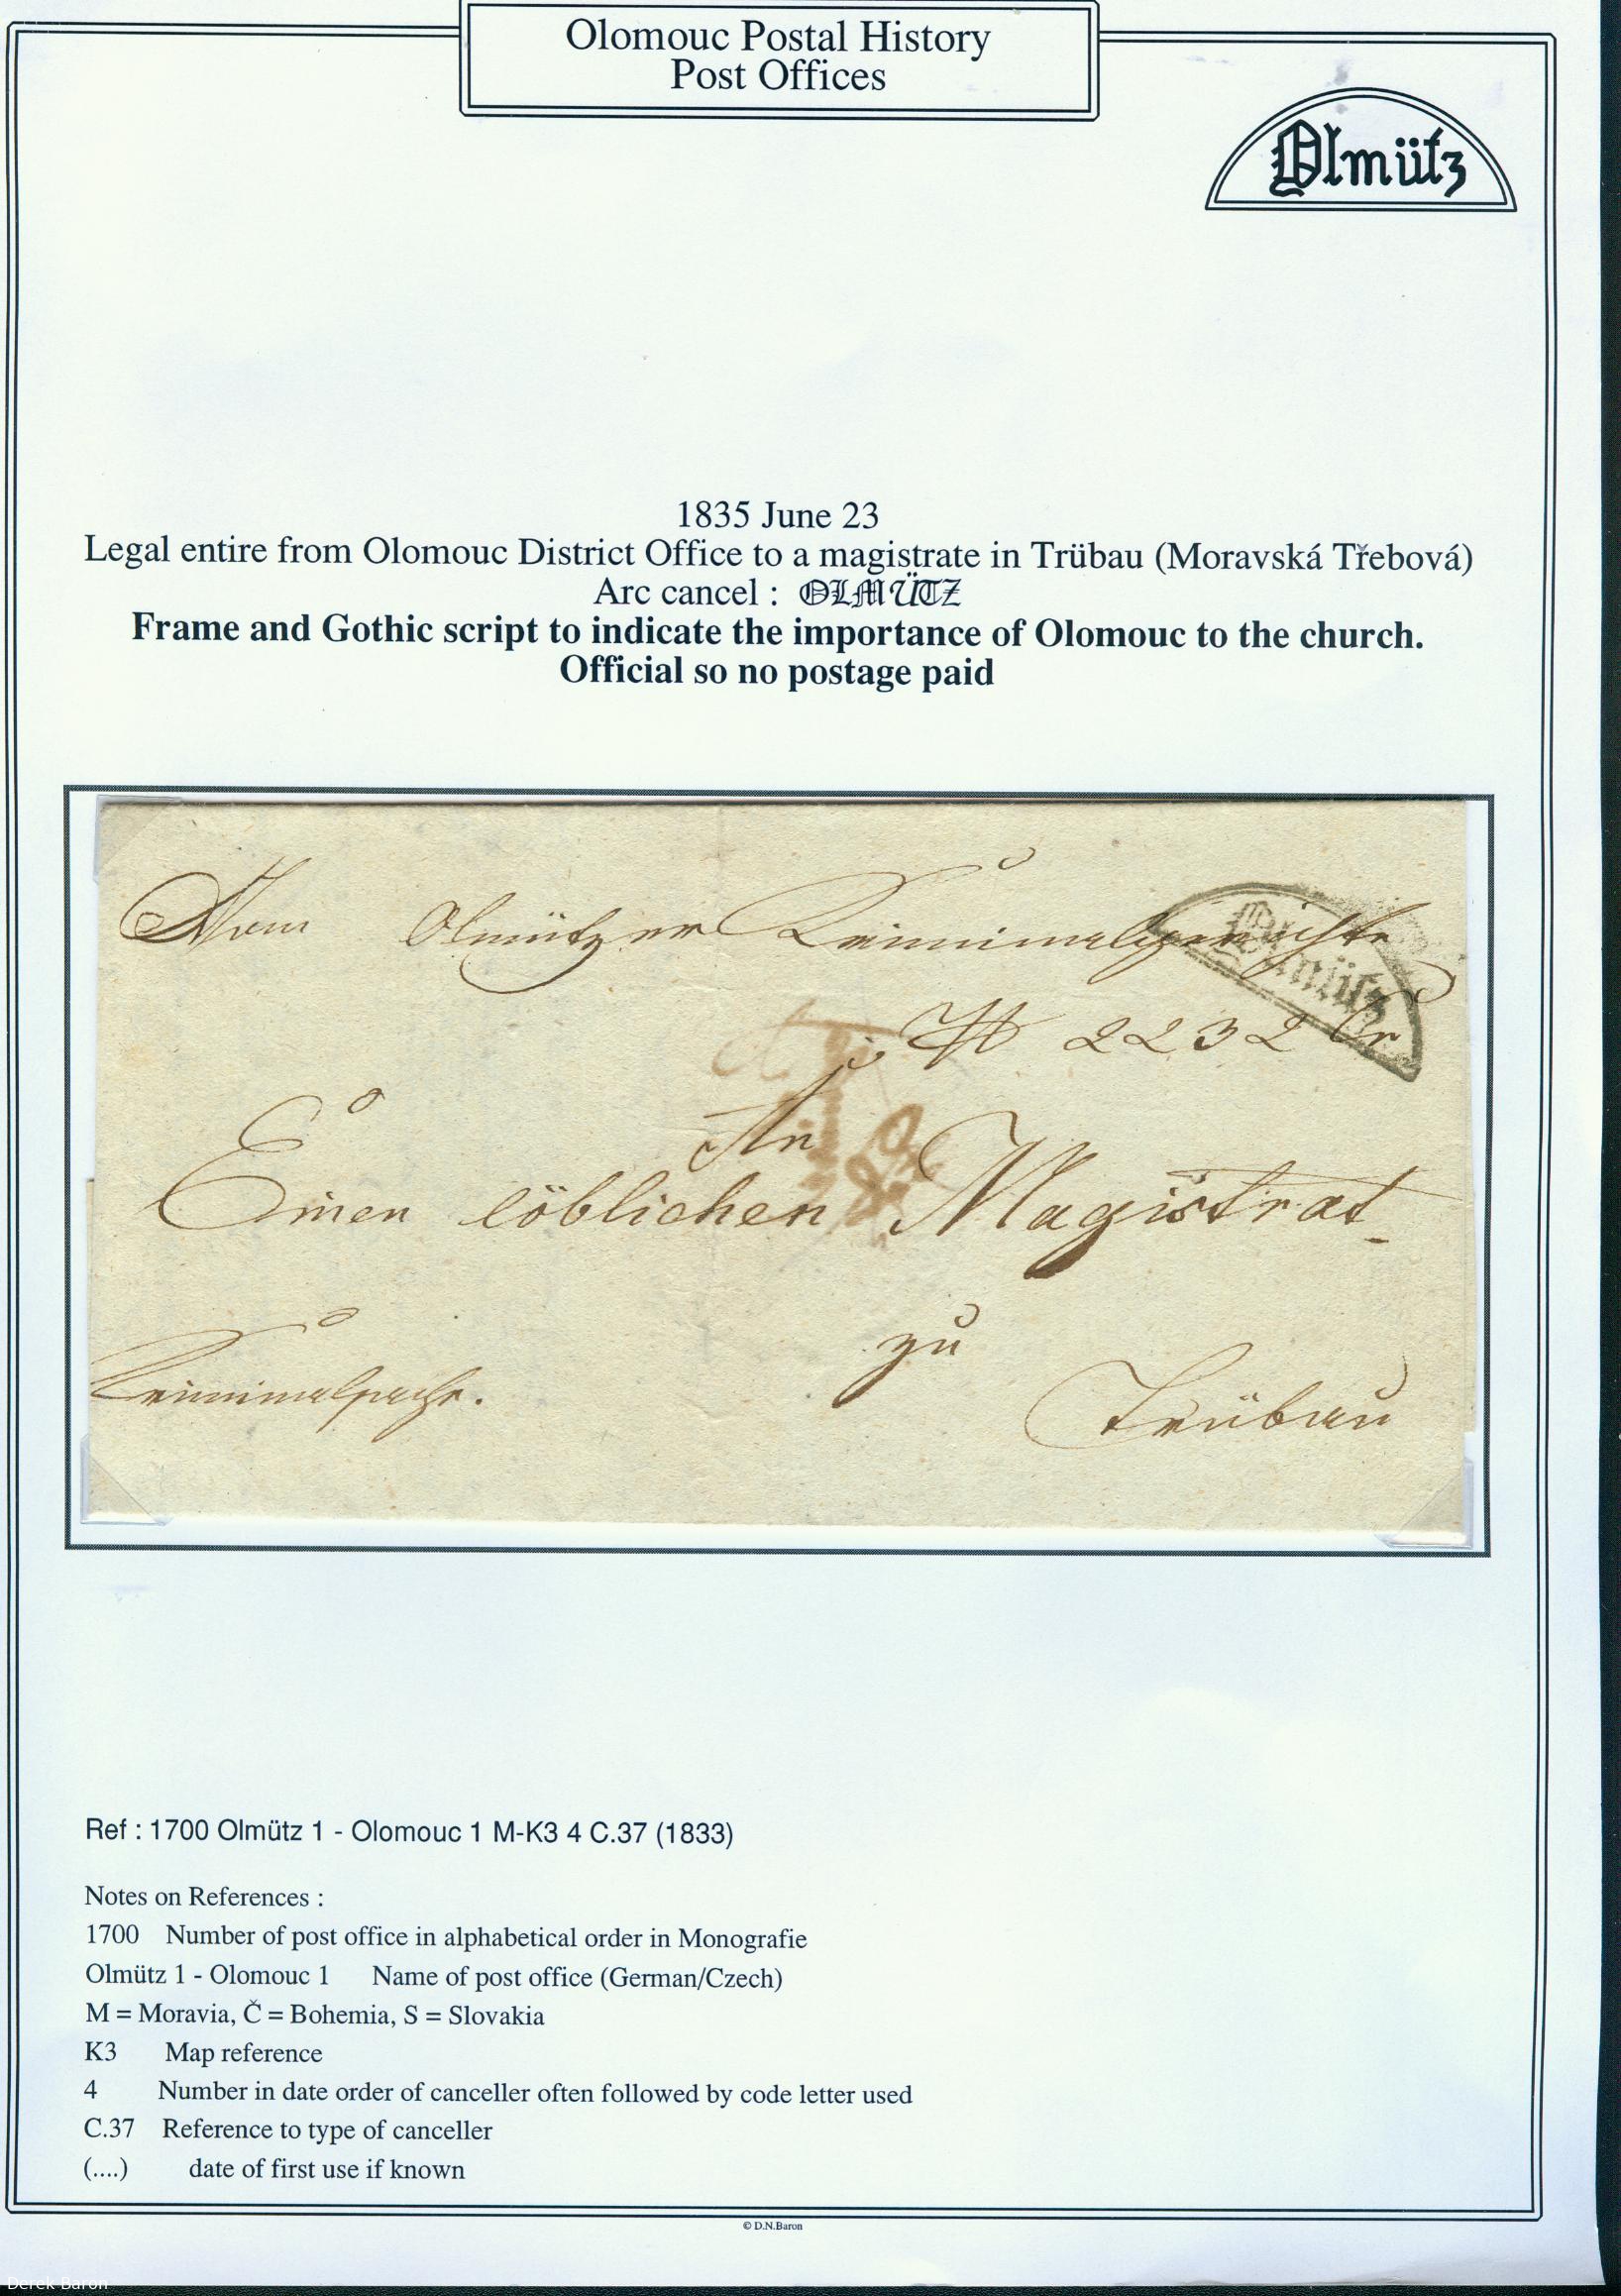 Olomouc Postal History
Post Offices
Olmütz
1835 June 23
Legal entire from Olomouc District Office to a magistrate in Trübau (Moravská Třebová)
Arc cancel : OLMÜTZ
Frame and Gothic script to indicate the importance of Olomouc to the church.
Official so no postage paid
Vom Olmützer Kriminalgerichte
Olmütz
N 2232 Cr
An
Einen löblichen Magistrat
zu
Kriminalsache.
Trübau
Ref : 1700 Olmütz 1 - Olomouc 1 M-K3 4 C.37 (1833)
Notes on References :
1700 Number of post office in alphabetical order in Monografie
Olmütz 1 - Olomouc 1 Name of post office (German/Czech)
M = Moravia, Č = Bohemia, S = Slovakia
K3 Map reference
4 Number in date order of canceller often followed by code letter used
C.37 Reference to type of canceller
(....) date of first use if known
© D.N.Baron
Derek Baron